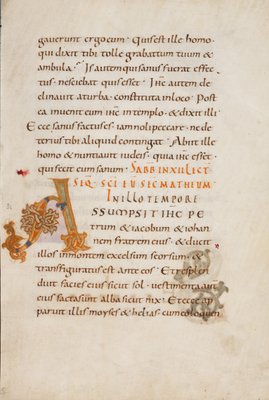 gauerunt ergo eum · Quis est ille homo ·
qui dixit tibi tolle grabattum tuum &
ambula · Is autem qui sanus fuerat effec
tus · nesciebat quis esset · ihc autem de
clinauit a turba · constituta in loco · Post
ea inuenit eum ihc in templo · & dixit illi
Ecce sanus factus es · iam noli peccare · ne de
terius tibi aliquid contingat · Abiit ille
homo & nuntiauit iudeis · quia ihc esset ·
qui fecit eum sanum · SABB IN XII LECT
SEQ SCI EU SEC MATHEUM
IN ILLO TEMPORE
ASSUMPSIT IHC PE
trum & iacobum & iohan
nem fratrem eius · & ducit
illos in montem excelsum seorsum · &
transfiguratus est ante eos · Et resplen
duit facies eius sicut sol · uestimenta aut
eius facta sunt alba sicut nix · Et ecce ap
paruit illis moyses & helias · cum eo loquen